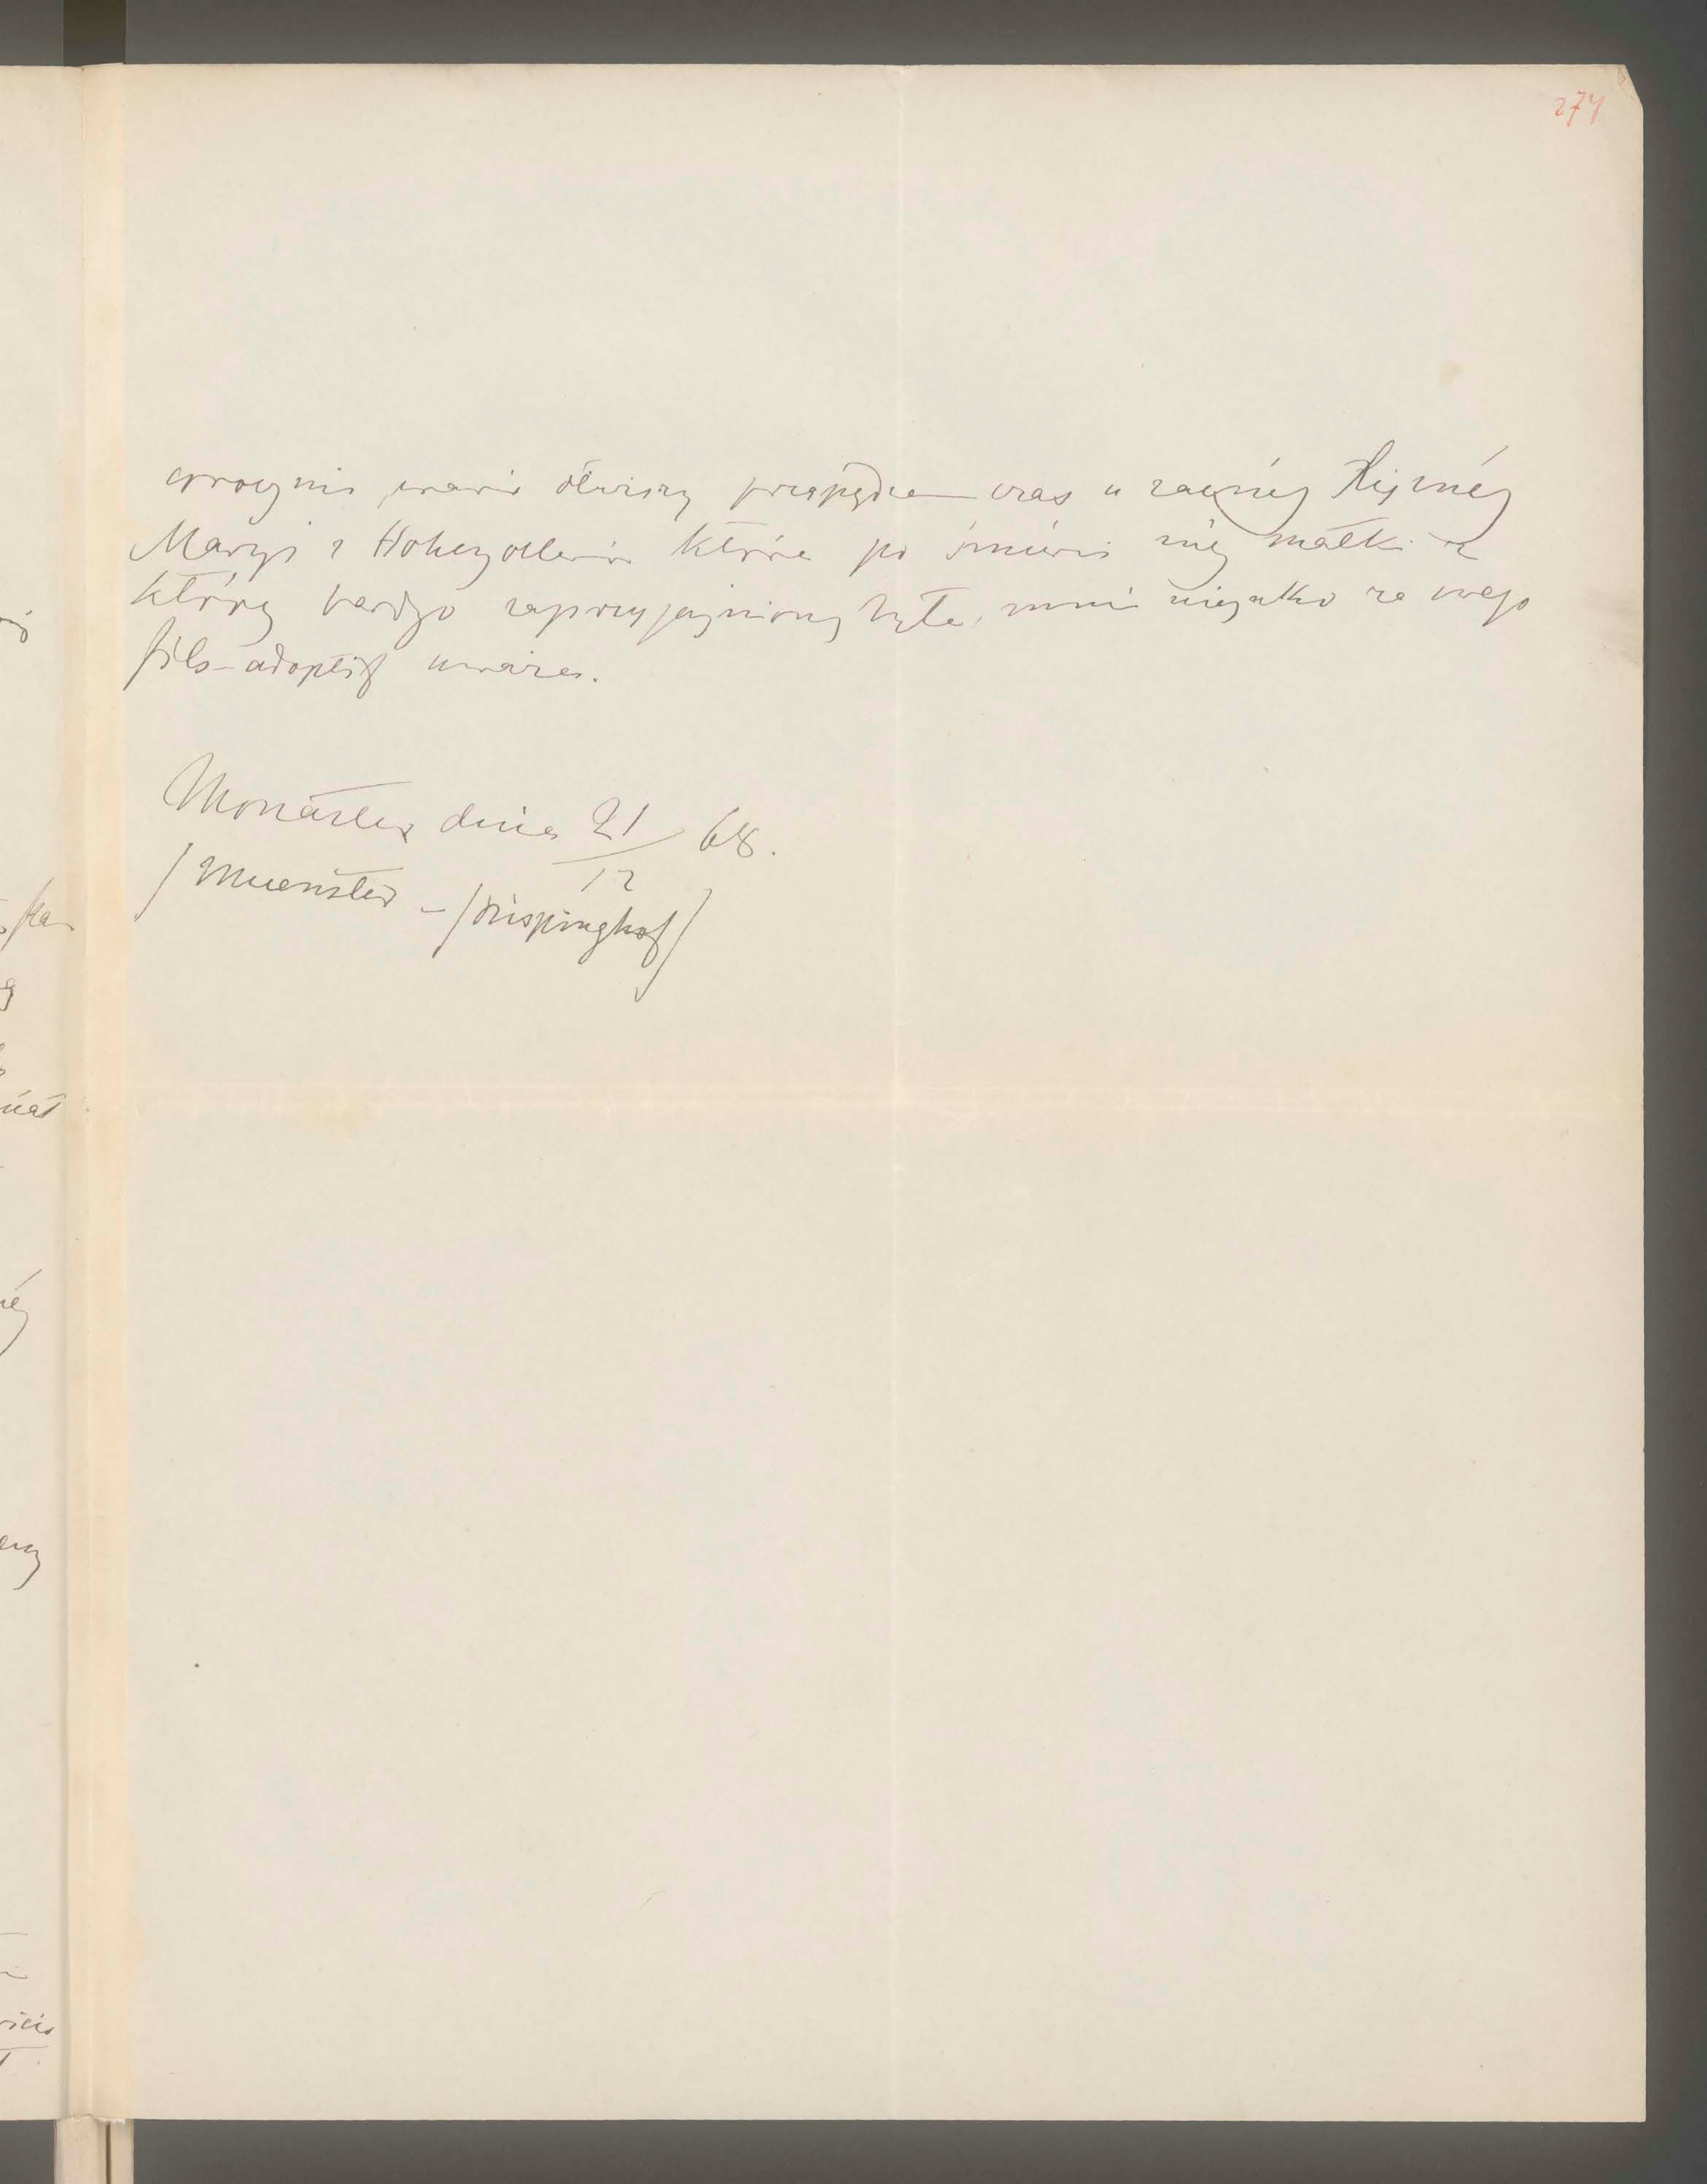 274
przepędzam czas u zacnéj Księżnéj
Maryi z Hohenzollernów która po śmierci méj matki z
którą bardzo zaprzyjaźnioną była, mnie niejako za swego
fils-adoptif uważa.
Monaster dnia 21/12 68.
/Muenster - /Krispinghof/